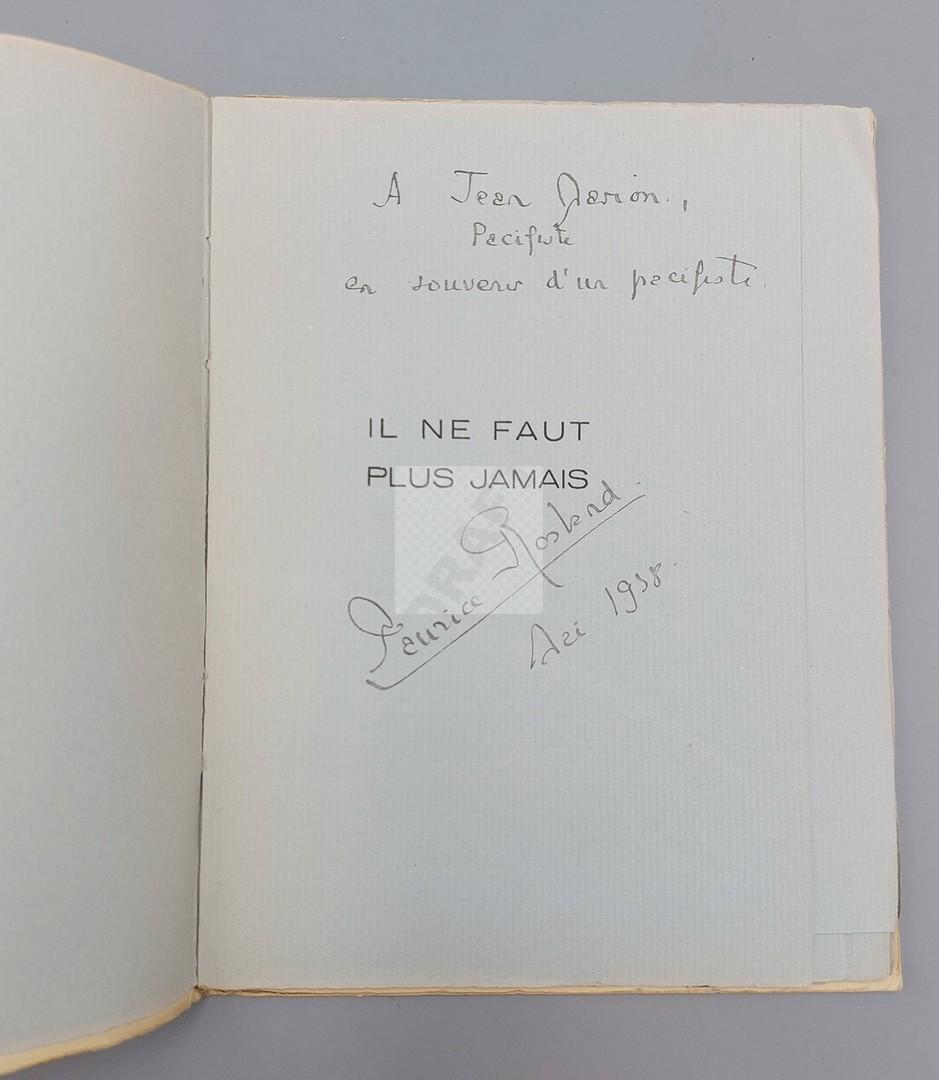 A Jean Marion.,
Pacifiste
en souvenir d'un pacifiste.
IL NE FAUT
PLUS JAMAIS
Maurice Rostand.
Mai 1938.